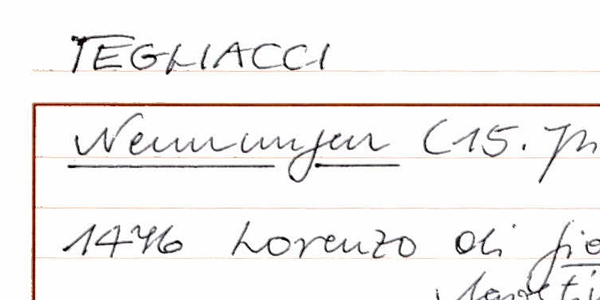 TEGLIACCI
Nennungen (15. Jh
1476 Lorenzo di gio